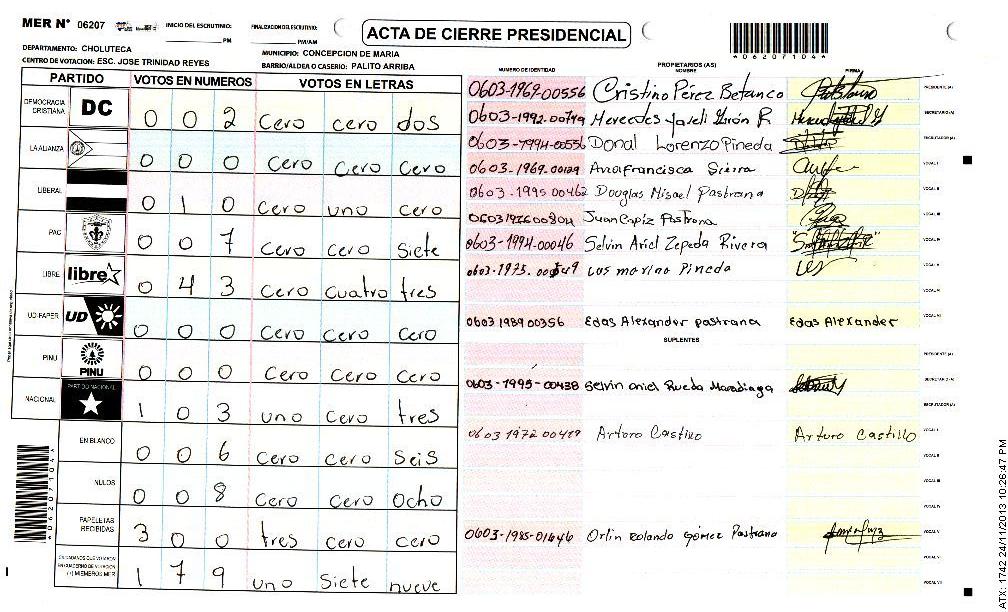 MER N° 06207
INICIO DEL ESCRUTINIO: PM
FINALIZACION DEL ESCRUTINIO: PM/AM
ACTA DE CIERRE PRESIDENCIAL
*06207104*
DEPARTAMENTO: CHOLUTECA
MUNICIPIO: CONCEPCION DE MARIA
CENTRO DE VOTACION: ESC. JOSE TRINIDAD REYES
BARRIO/ALDEA O CASERIO: PALITO ARRIBA
PARTIDO VOTOS EN NUMEROS VOTOS EN LETRAS
DEMOCRACIA CRISTIANA DC 0 0 2 cero cero dos
LA ALIANZA 0 0 0 cero cero cero
LIBERAL 0 1 0 cero uno cero
PAC 0 0 7 cero cero siete
LIBRE libre 0 4 3 cero cuatro tres
UD-FAPER UD 0 0 0 cero cero cero
PINU PINU 0 0 0 cero cero cero
NACIONAL PARTIDO NACIONAL 1 0 3 uno cero tres
EN BLANCO 0 0 6 cero cero seis
NULOS 0 0 8 cero cero ocho
PAPELETAS RECIBIDAS 3 0 0 tres cero cero
CIUDADANOS QUE VOTARON EN CUADERNO DE VOTACION (+) MIEMBROS MER 1 7 9 uno siete nueve
PROPIETARIOS (AS)
NUMERO DE IDENTIDAD NOMBRE FIRMA
0603-1969-00556 Cristino Pérez Betanco PRESIDENTE (A)
0603-1992-00749 Mercedes Yareli Girón R SECRETARIO (A)
0603-1994-00556 Donal Lorenzo Pineda ESCRUTADOR (A)
0603-1969-00129 Ana francisca Sierra VOCAL I
0603-1995 00462 Douglas Misael Pastrana VOCAL II
0603197600804 Juan Pastrana VOCAL III
0603-1994-00046 Selvin Ariel Zepeda Rivera VOCAL IV
0603-1975. Los marino Pineda VOCAL V
0603 1989 00356 Edas Alexander pastrana Edas Alexander VOCAL VI
SUPLENTES
PRESIDENTE (A)
0603-1995-00438 Selvin ariel Rueda Maradiaga SECRETARIO (A)
ESCRUTADOR (A)
0603 1972 00419 Arturo Castillo Arturo Castillo VOCAL I
VOCAL II
VOCAL III
VOCAL IV
0603-1985-01646 Orlin Rolando Gómez Pastrana VOCAL V
VOCAL VI
VOCAL VII
*06207104*
ATX: 1742 24/11/2013 10:26:47 PM